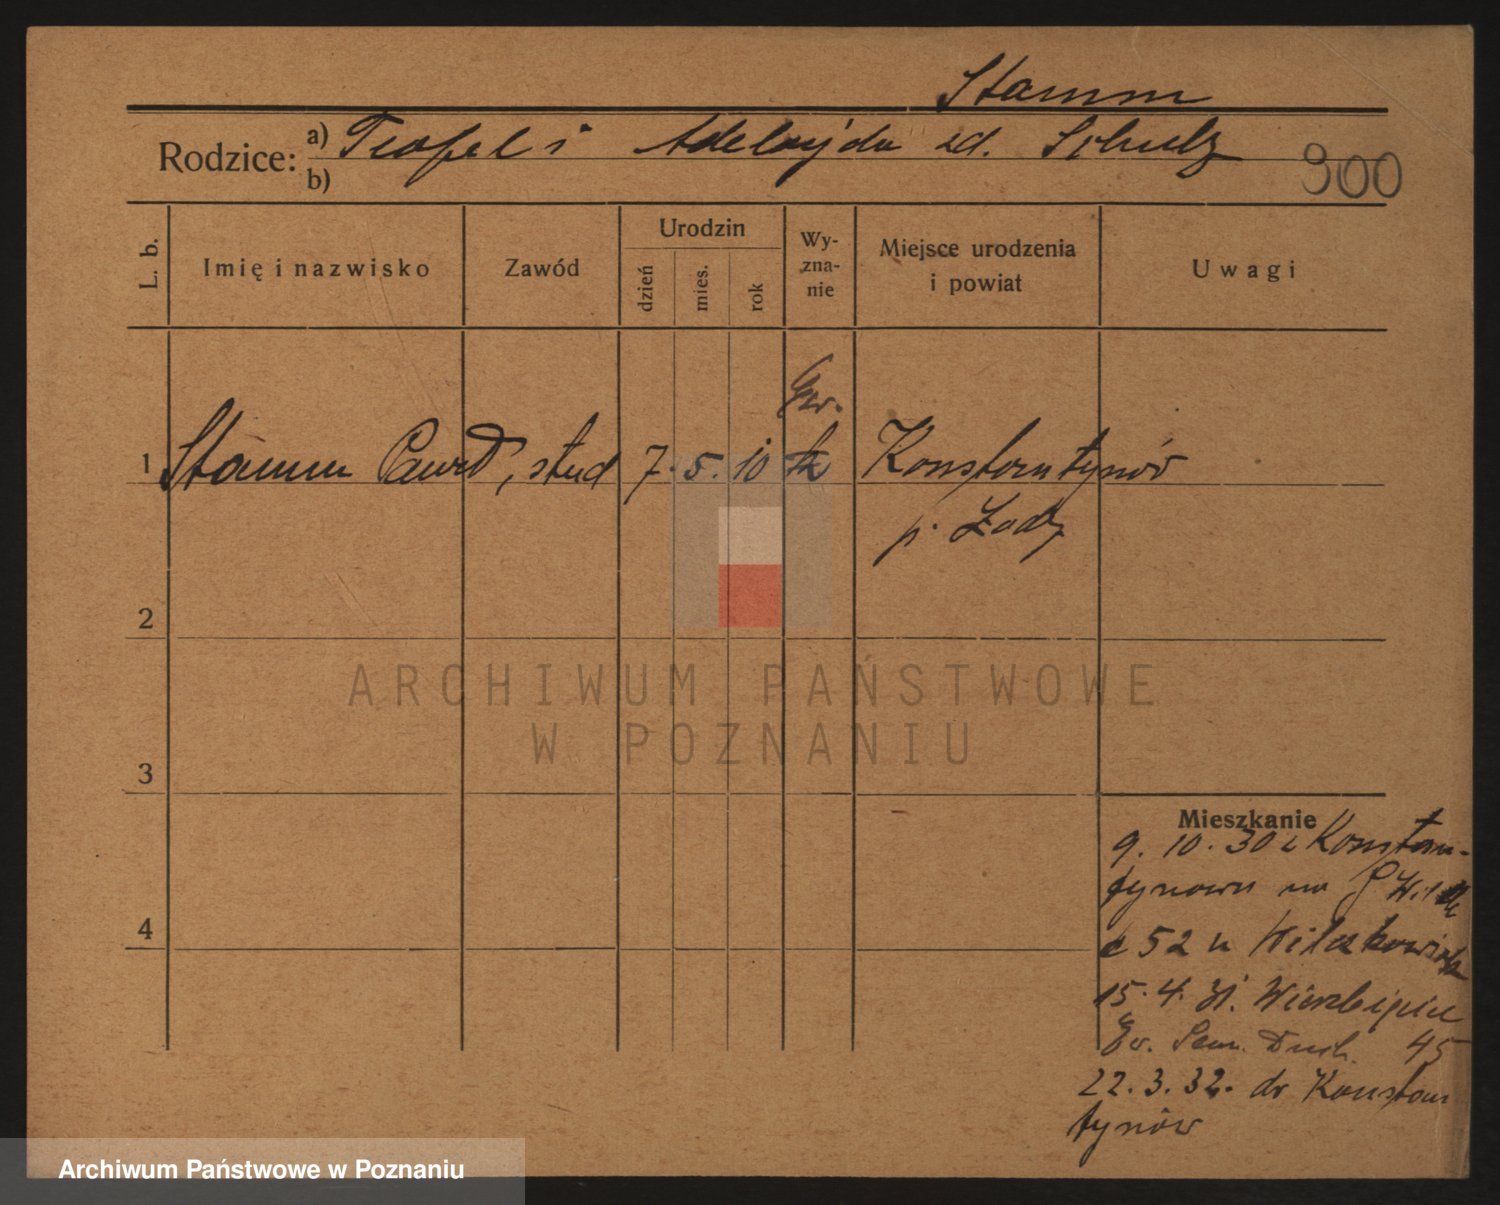 Stamm
Rodzice: a) Teofil i Adelajda zd. Schulz
b)
900
L. b.
Imię i nazwisko
Zawód
Urodzin
dzień
mies.
rok
Wy-
zna-
nie
Miejsce urodzenia
i powiat
Uwagi
Ew.
1 Stamm , stud 7. 5. 10 Konstantynów
p. Łódź
2
ARCHIWUM PAŃSTWOWE
W POZNANIU
3
Mieszkanie
9. 10. 30 z Konstan-
tynowa na
52 u
4
15. 4. 31. Wierzbięcice
Ew. Sem. Duch. 45
22. 3. 32. do Konstan
tynów
Archiwum Państwowe w Poznaniu